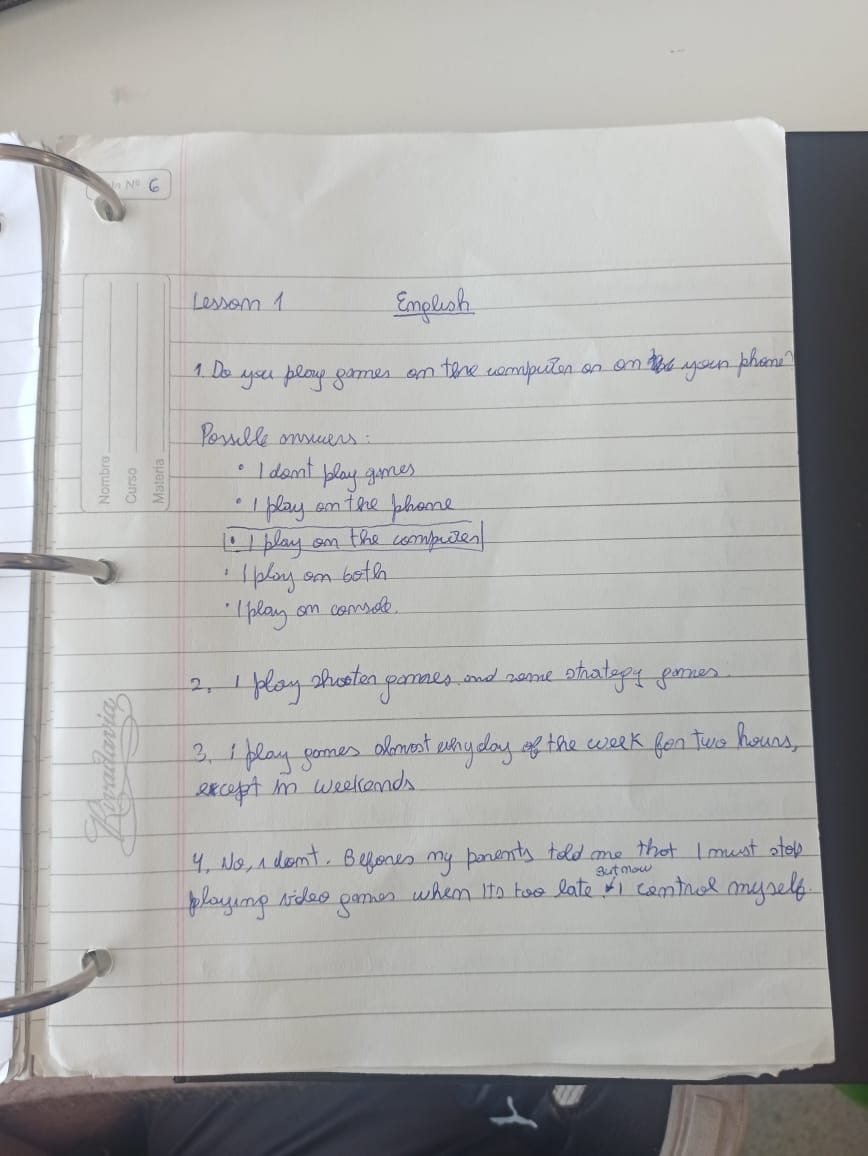 Nº 6
Nombre
Curso
Materia
Rivadavia
Lesson 1 English
1. Do you play games on the computer or on your phone?
Possible answers:
• I dont play games
• I play on the phone
• I play on the computer
• I play on both
• I play on console.
2. I play shooter games and some strategy games.
3. I play games almost everyday of the week for two hours,
except in weekends
4. No, I dont. Befores my parents told me that I must stop
but now
playing video games when its too late I control myself.